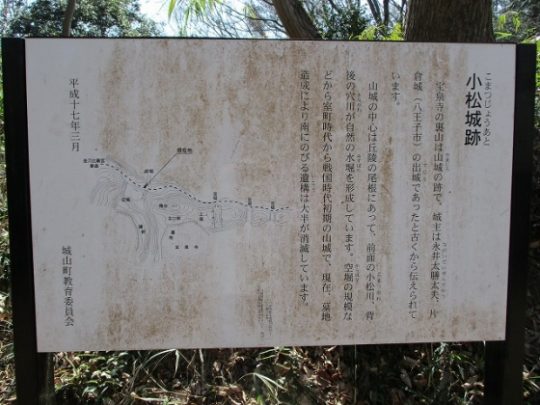 こまつじょうあと
小松城跡
宝泉寺の裏山は山城の跡で、城主は永井大膳太夫、片
倉城（八王子市）の出城であったと古くから伝えられて
います。
山城の中心は丘陵の尾根にあって、前面の小松川、背
後の穴川が自然の水堀を形成しています。空堀の規模な
どから室町時代から戦国時代初期の山城で、現在、墓地
造成により南にのびる遺構は大半が消滅しています。
平成十七年三月
城山町教育委員会
現在地